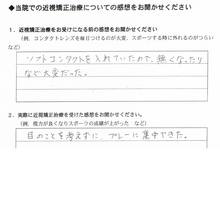 ◆当院での近視矯正治療についての感想をお聞かせください
1．近視矯正治療をお受けになる前の感想をお聞かせください
（例．コンタクトレンズを毎日つけるのが大変、スポーツする時に外れるのがつらい
など）
ソフトコンタクトを入れていたので、痛くなったり
など大変だった。
2．実際に近視矯正治療を受けた感想をお聞かせください。
（例．視力が良くなりスポーツの成績が上がった　など）
目のことを考えずに、プレーに集中できた。